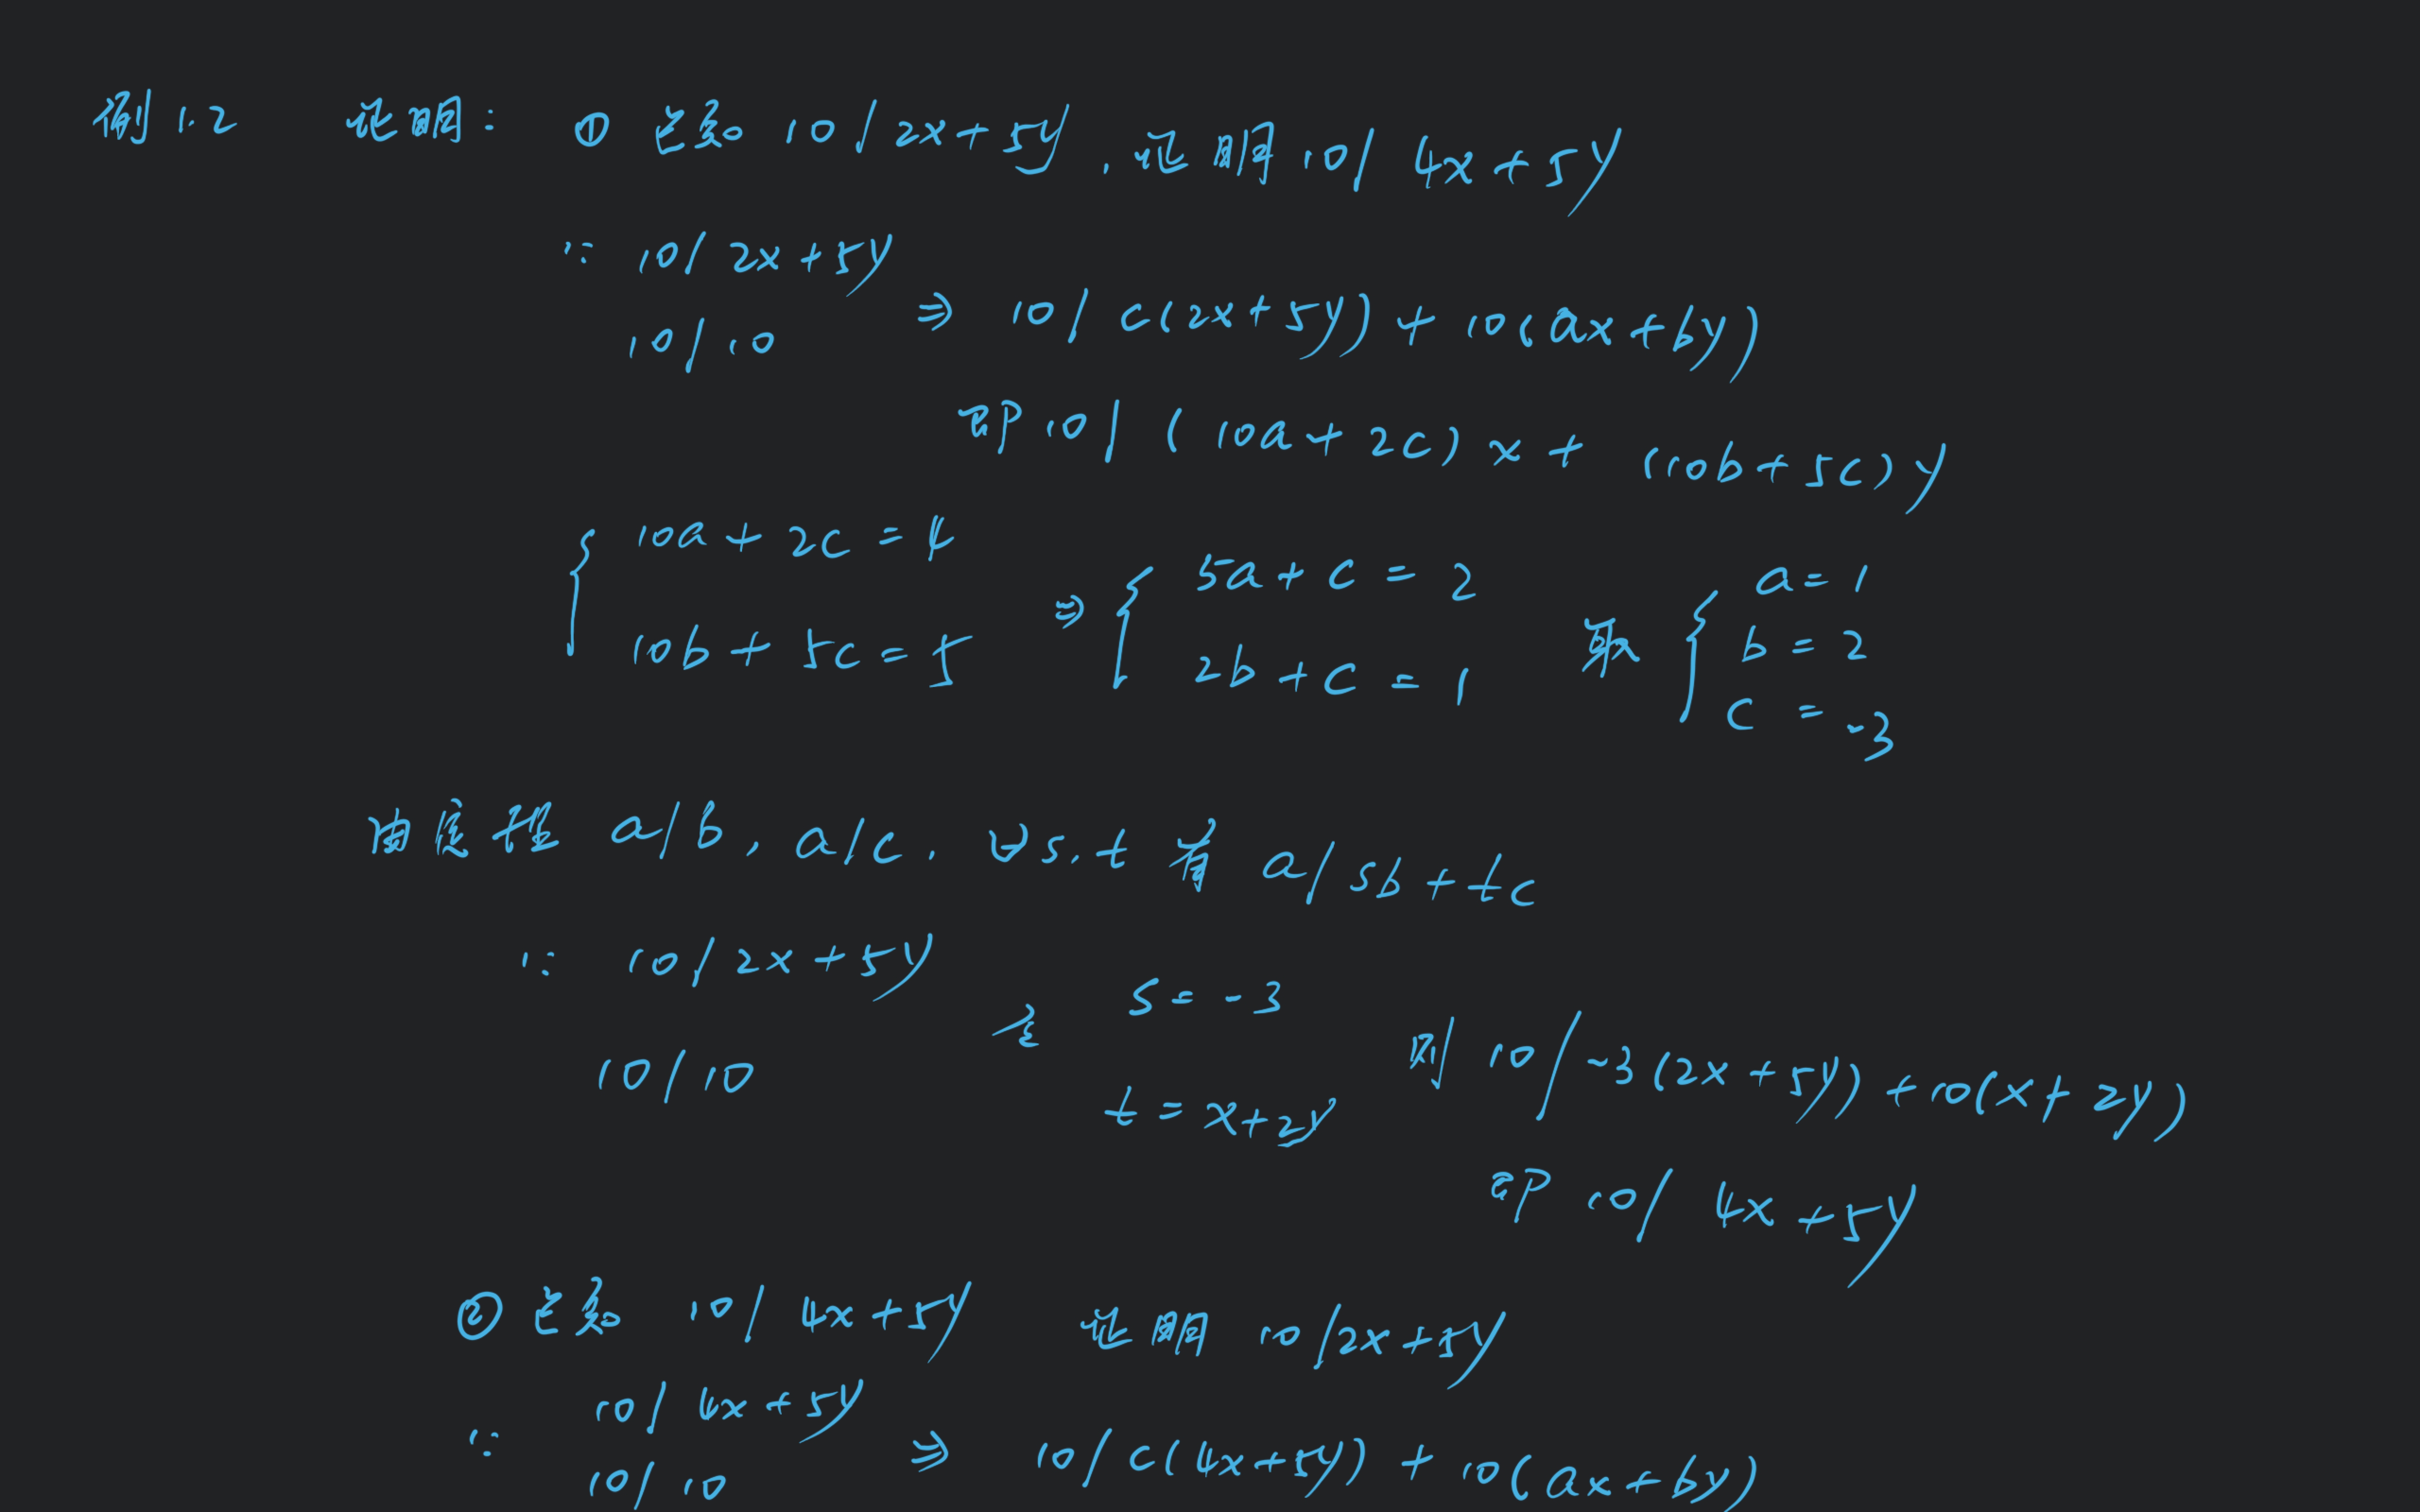 例1.2 证明: ① 已知 10|2x+5y,证明 10|4x+5y
∵ 10|2x+5y
10|10 ⇒ 10|c(2x+5y)+10(ax+by)
即 10|(10a+2c)x+(10b+5c)y
{ 10a+2c=4 ⇒ { 5a+c=2 取 { a=1
10b+5c=5 2b+c=1 b=2
c=-3
a|b, a|c, ∀s,t 有 a|sb+tc
∵ 10|2x+5y
取 s=-3 则 10|-3(2x+5y)+10(x+2y)
10|10 t=x+2y
即 10|4x+5y
② 已知 10|4x+5y 证明 10|2x+5y
∵ 10|4x+5y
10|10 ⇒ 10|c(4x+5y)+10(ax+by)